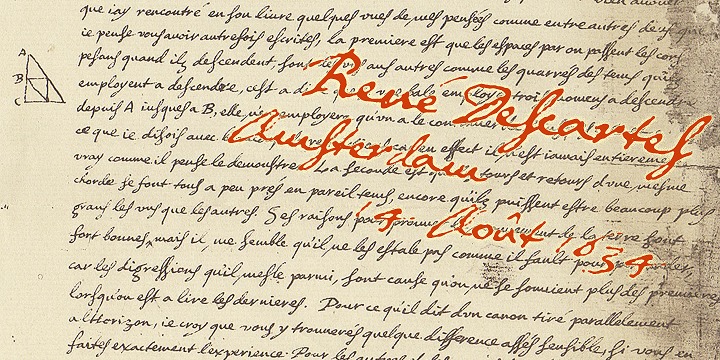 que iay rencontré en son livre quelques vnes de mes pensées comme entre autres deux que
ie pense vous avoir autrefois escrites, la premiere est que les espaces par ou passent les cors
pesans quand ilz descendent sont les vns aux autres comme les quarrés des tems qu'ilz
employent a descendre, c'est a dire que vne bale employe trois momens a descendre
depuis A iusques a B, elle n'en employera qu'vn a le continuer
ce que ie disois avec car en effect il n'est iamais entierement
vray comme il pense le demonstrer. La seconde est que tours et retours d'vne mesme
chorde se font tous a peu pres en pareil tems, encore qu'ilz puissent estre beaucoup plus
grans les vns que les autres. Ses raisons pour prouver le mouvement de la terre sont
fort bonnes, mais il me semble qu'il ne les estale pas comme il fault pour persuader,
car les digressions qu'il mesle parmi, sont cause qu'on ne se souvient plus des premieres
lorsqu'on est a lire les dernieres. Pour ce qu'il dit d'vn canon tiré parallelement
a l'horizon, ie croy que vous y trouverés quelque difference assés sensible, si vous en
faites exactement l'experience. Pour les autres
A
B
C
René Descartes
Amsterdam
14. Août 1634